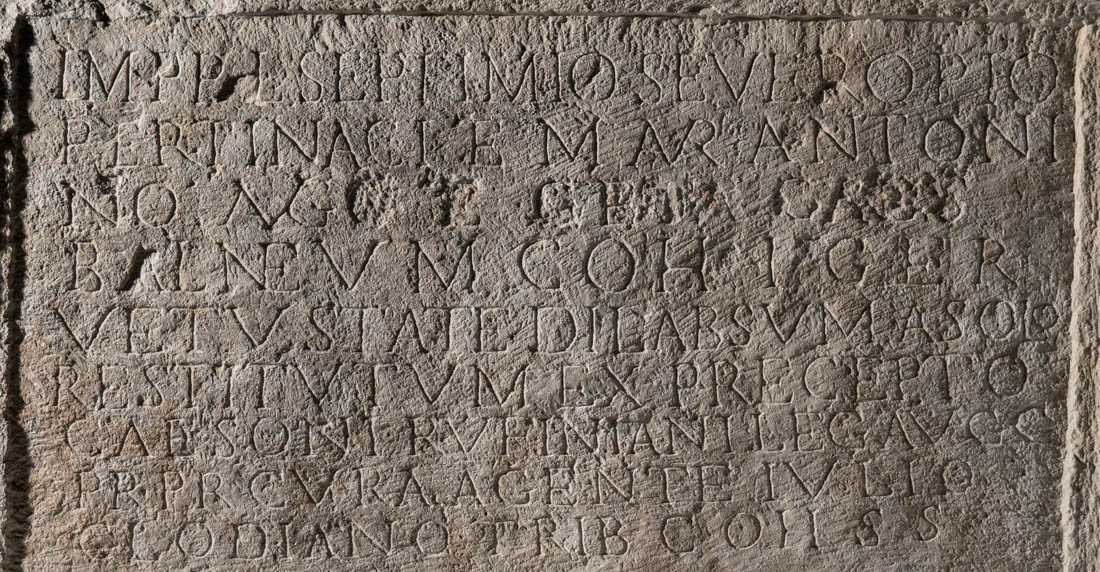 IMPP L SEPTIMIO SEVERO PIO
PERTINACI M AVR ANTONI
NO AVG
BALNEVM COH I GER
VETVSTATE DILABSVM A SOLO
RESTITVTVM EX PRECEPTO
CAESONI RVFINIANI LEG AVGG
PR PR CVRA AGENTE IVLIO
CLODIANO TRIB COH S S